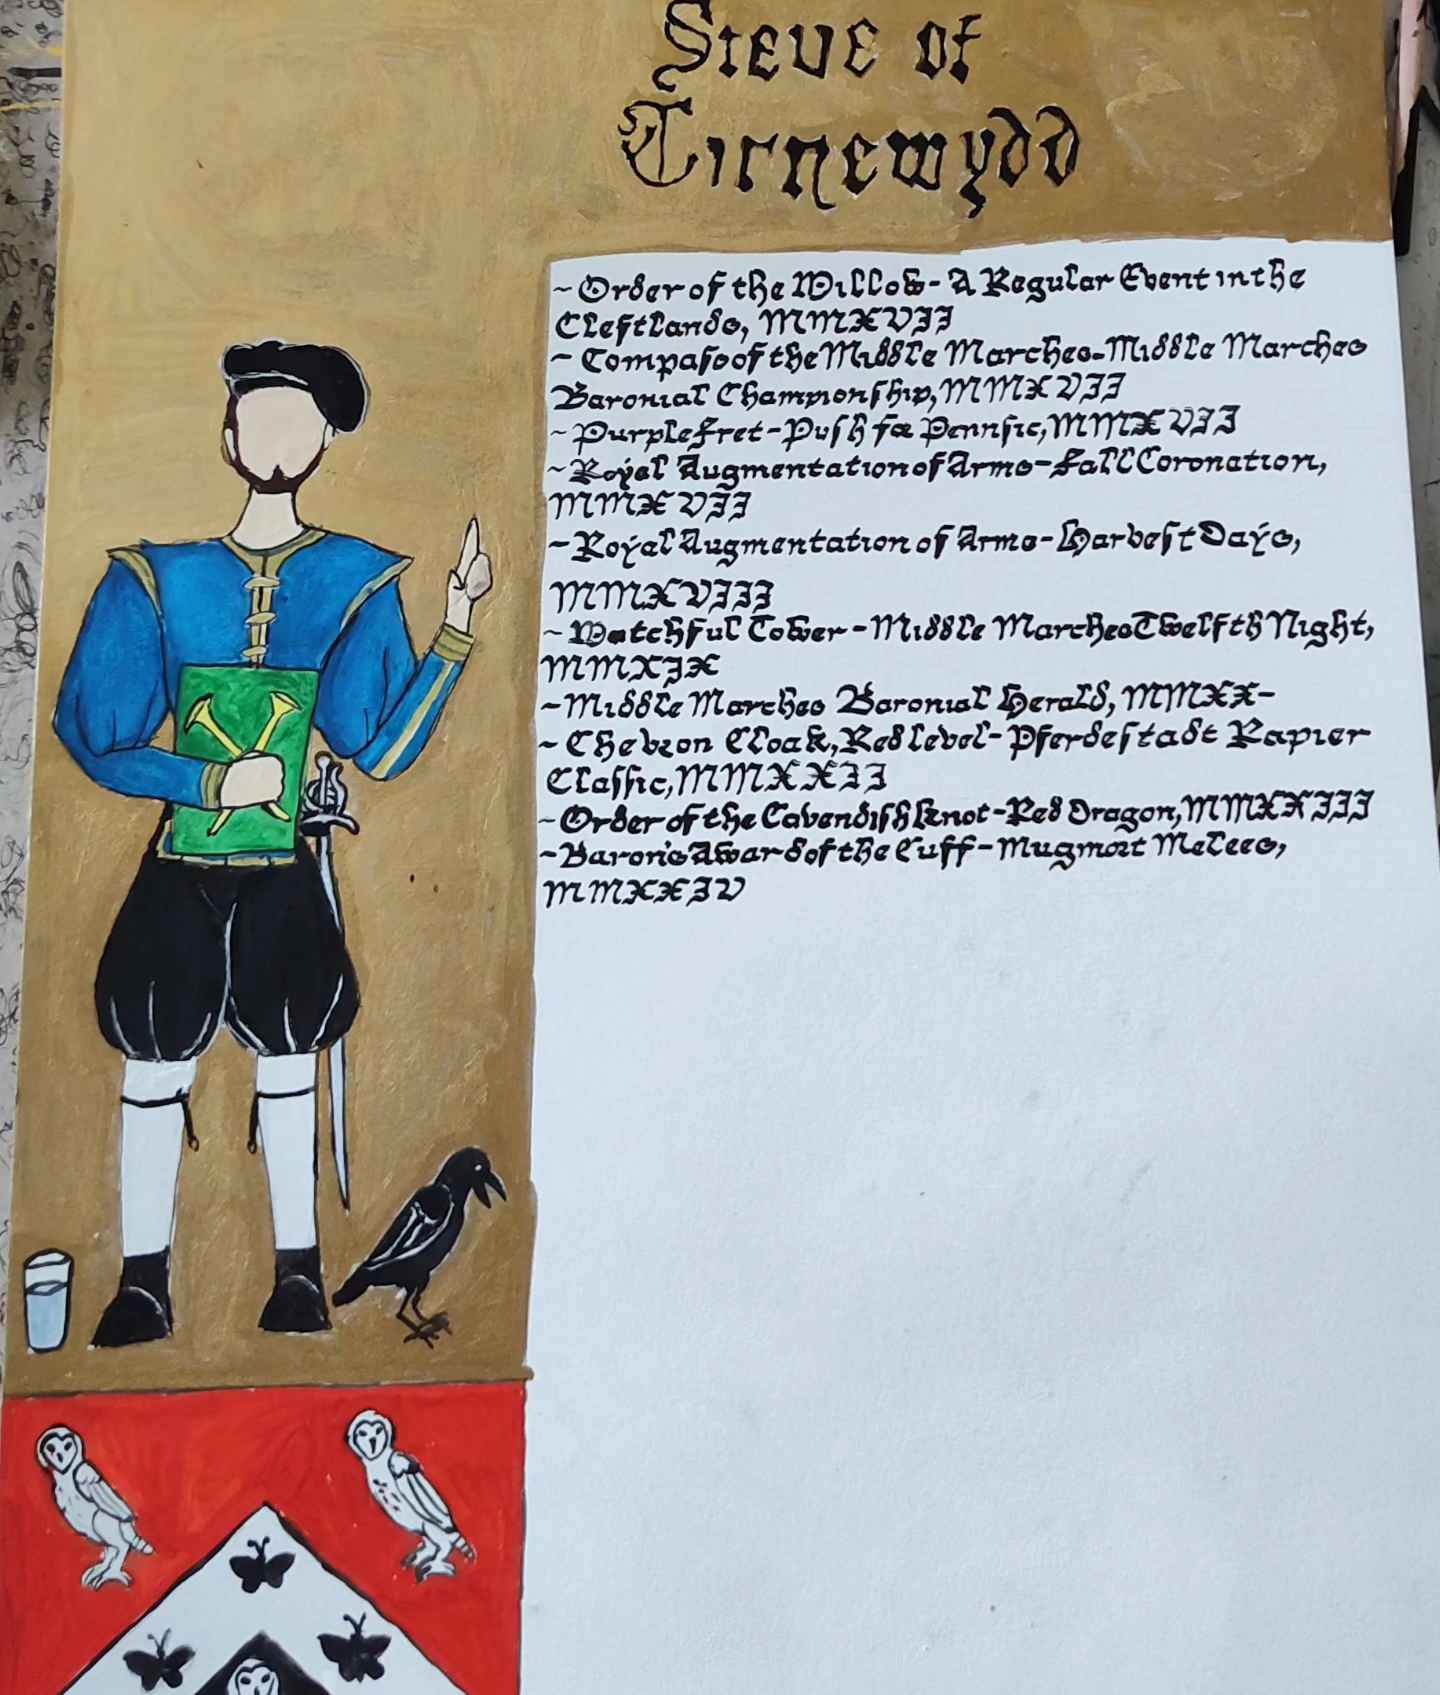 Steve of
Tirnewydd
~Order of the Willow- A Regular Event in the
Cleftlands, MMXVII
~ Compass of the Middle Marches-Middle Marches
Baronial Championship, MMXVII
~Purple Fret-Push for Pennsic, MMXVII
~Royal Augmentation of Arms-Fall Coronation,
MMXVII
~Royal Augmentation of Arms-Harvest Days,
MMXVIII
~Watchful Tower-Middle Marches Twelfth Night,
MMXIX
~Middle Marches Baronial Herald, MMXX-
~Chevron Cloak, Red level-Pferdestadt Rapier
Classic, MMXXII
~Order of the Cavendish Knot-Red Dragon, MMXXIII
~Baron's Award of the Cuff-Mugmort Melees,
MMXXIV